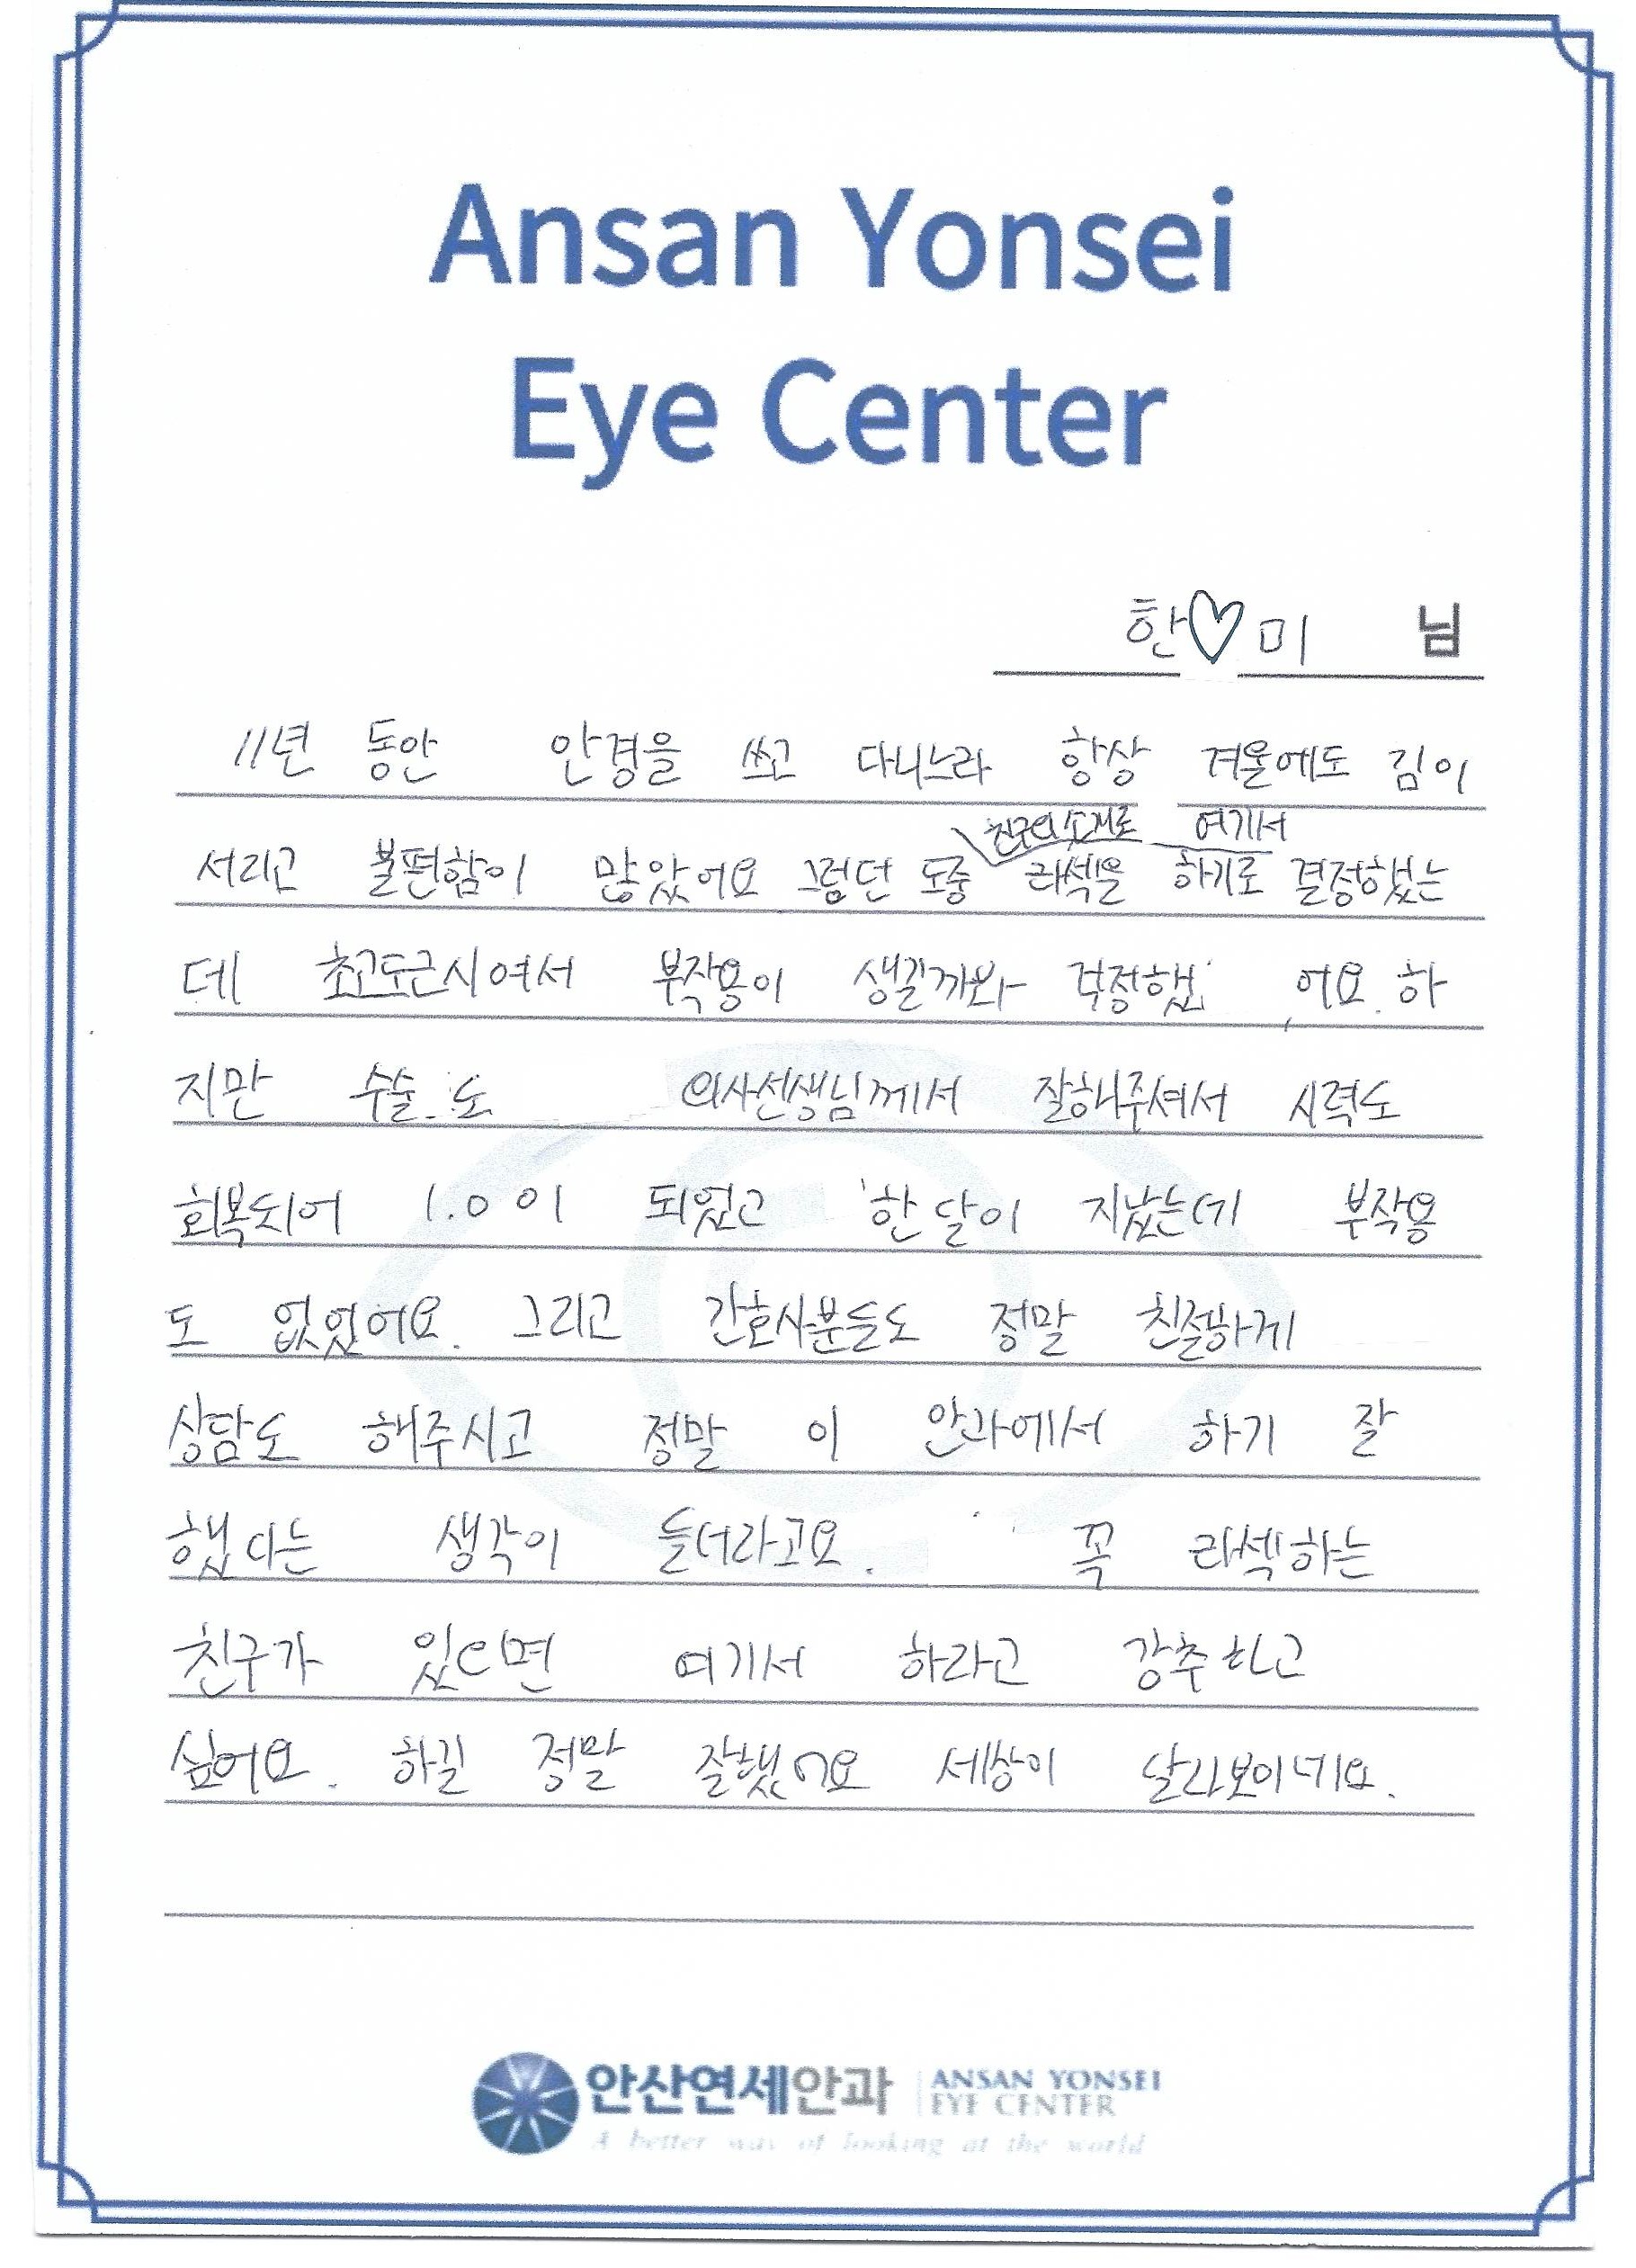 Ansan Yonsei
Eye Center
한♡미 님
11년 동안 안경을 쓰고 다니느라 항상 겨울에도 김이
친구의 소개로 여기서
서리고 불편함이 많았어요 그렇던 도중 라섹을 하기로 결정했는
데 초고도근시여서 부작용이 생길까봐 걱정했 어요. 하
지만 수술도 의사선생님께서 잘해주셔서 시력도
회복되어 1.0이 되었고 한달이 지났는데 부작용
도 없었어요. 그리고 간호사분들도 정말 친절하게
상담도 해주시고 정말 이 안과에서 하기 잘
했다는 생각이 들더라고요. 꼭 라섹하는
친구가 있으면 여기서 하라고 강추하고
싶어요. 하길 정말 잘했어요 세상이 달라보이네요.
안산연세안과 ANSAN YONSEI
EYE CENTER
A better way of looking at the world